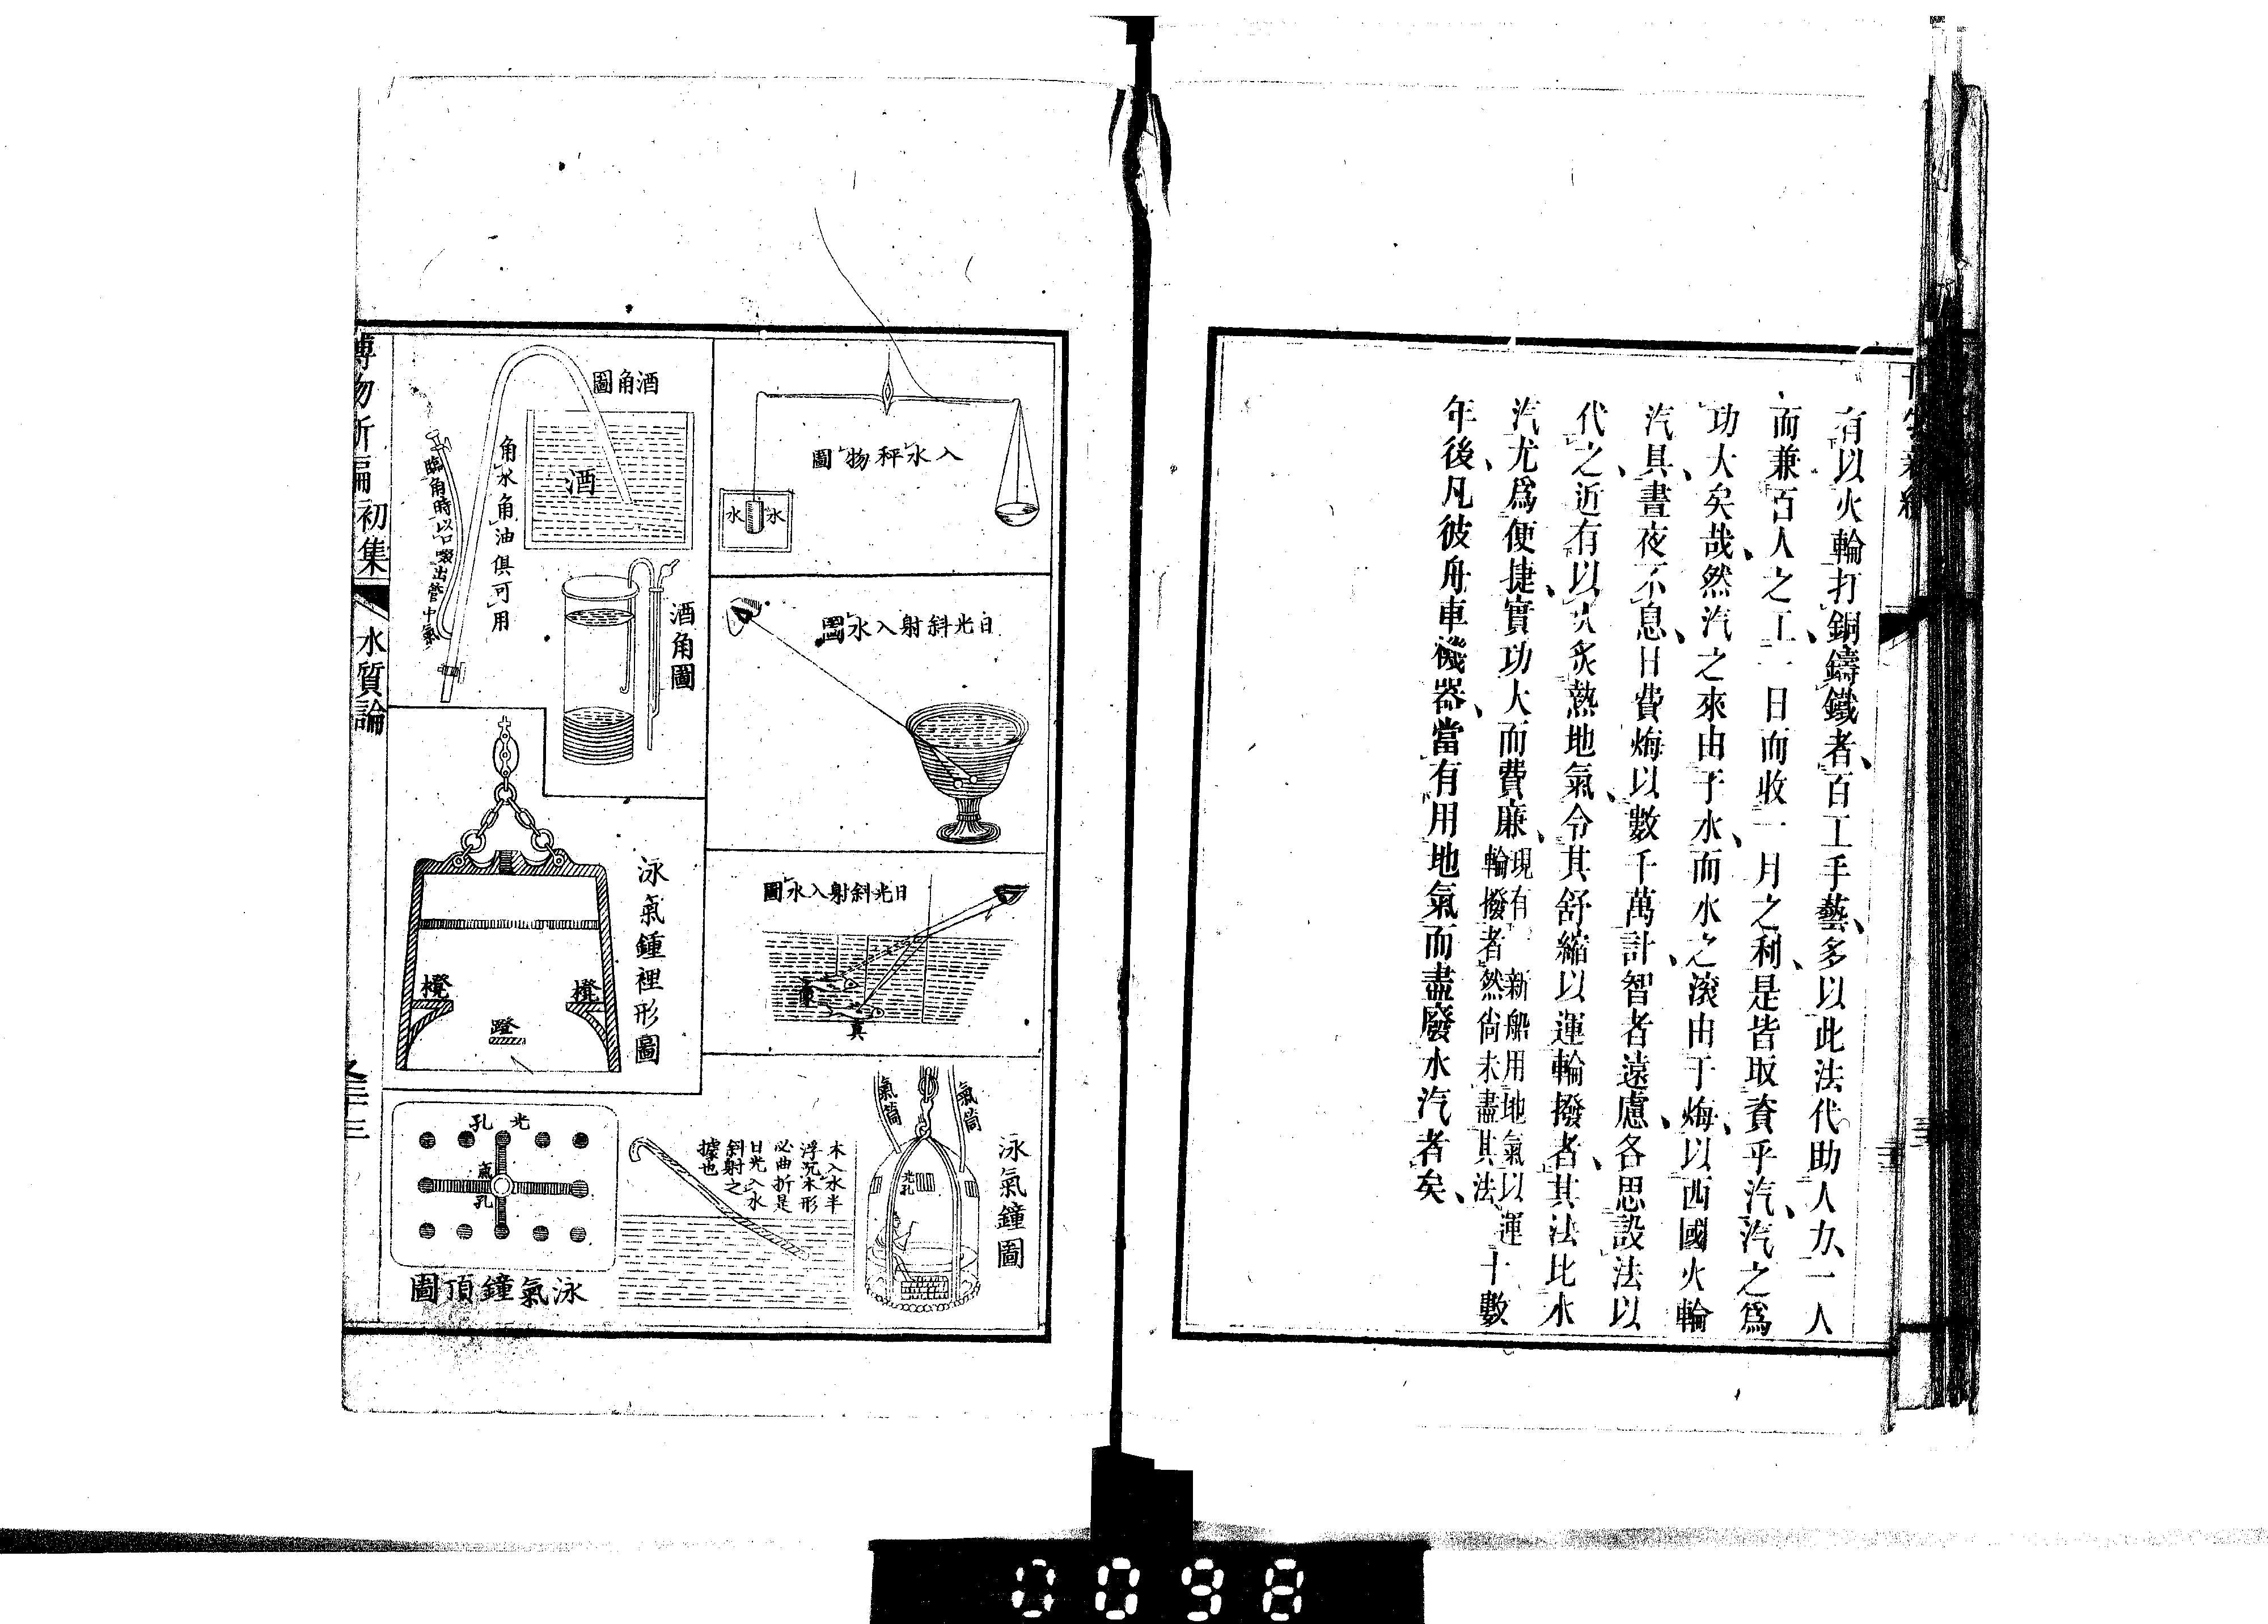 有以火輪打銅鑄鐵者、百工手藝、多以此法代助人力、一人
而兼百人之工、一日而收一月之利、是皆取資乎汽、汽之爲
功大矣哉、然汽之來由于水、而水之滾由于煤、以西國火輪
汽具、晝夜不息、日費煤以數千萬計、智者遠慮、各思設法以
代之、近有以火炙熱地氣、令其舒縮以運輪撥者、其法比水
汽尤爲便捷、實功大而費廉、現有新船用地氣以運輪撥者然尙未盡其法、十數
年後、凡彼舟車機器、當有用地氣而盡廢水汽者矣、
入水秤物圖
水
水
日光斜射入水圖
日光斜射入水圖
真
泳氣鐘圖
氣筒
氣筒
光孔
木入水半
浮沉木形
必曲折是
日光入水
斜射之
據也
酒角圖
酒
角水角油俱可用
臨角時以口啜出管中氣
酒角圖
泳氣鐘裡形圖
櫈
櫈
蹬
光孔
氣孔
泳氣鐘頂圖
博物新編 初集 水質論
0098